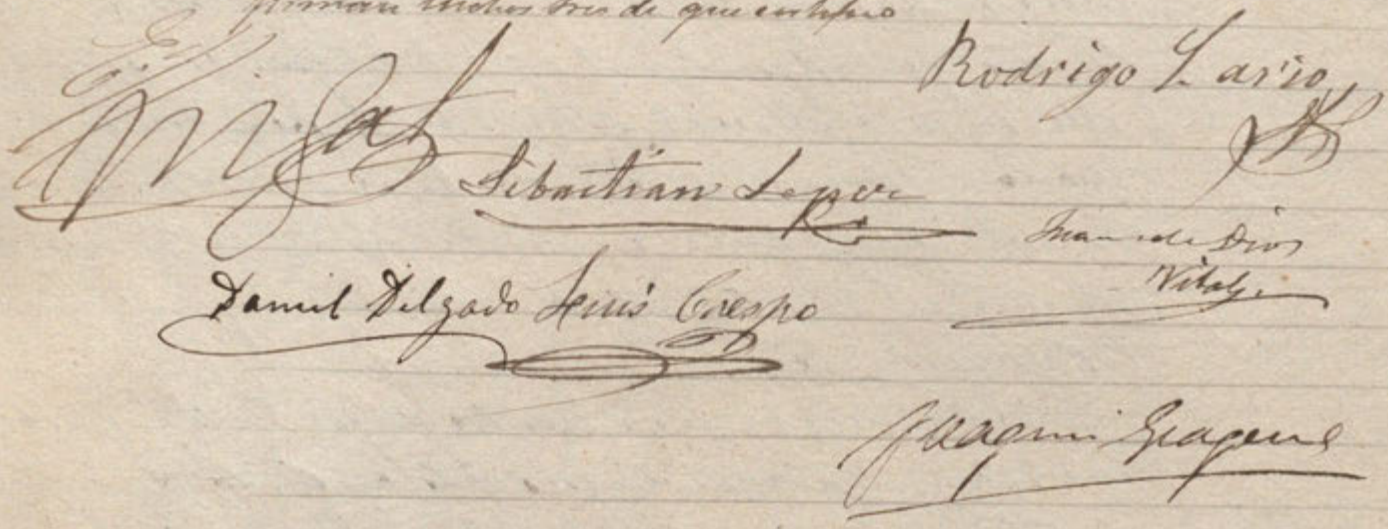 firman dichos tres de que certifico
Rodrigo Lario
Sebastian Lopez
Juan de Dios
Vitaly.
Daniel Delgado Luis Crespo
Joaquin